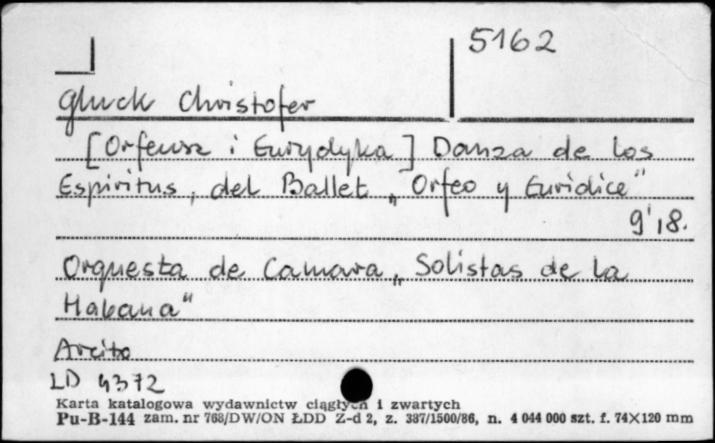 5162
Gluck Christofer
[Orfeusz i Eurydyka] Danza de los
Espiritus, del Ballet „Orfeo y Euridice"
9'18.
Orquesta de Camara „Solistas de la
Habana"
Arcito
LD 4372
Karta katalogowa wydawnictw ciągłych i zwartych
Pu-B-144 zam. nr 768/DW/ON ŁDD Z-d 2, z. 387/1500/86, n. 4 044 000 szt. f. 74×120 mm